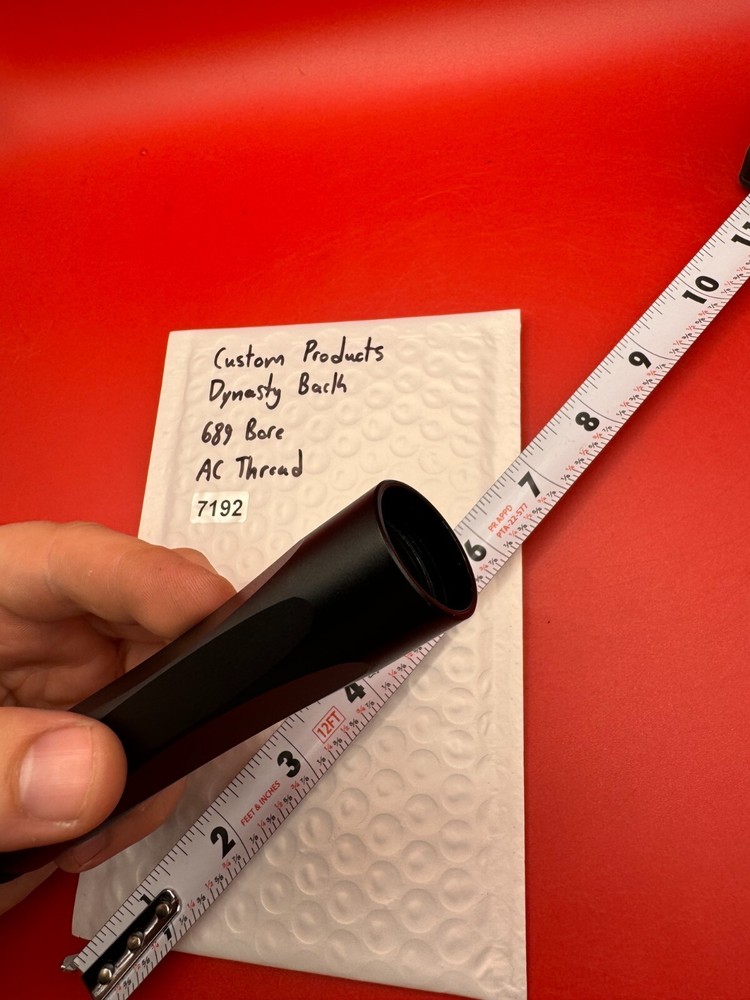 Custom Products
Dynasty Back
689 Bore
AC Thread
7192
1
2
FEET & INCHES
3
12FT
4
6
PR APPD
PTA-22-577
7
8
9
10